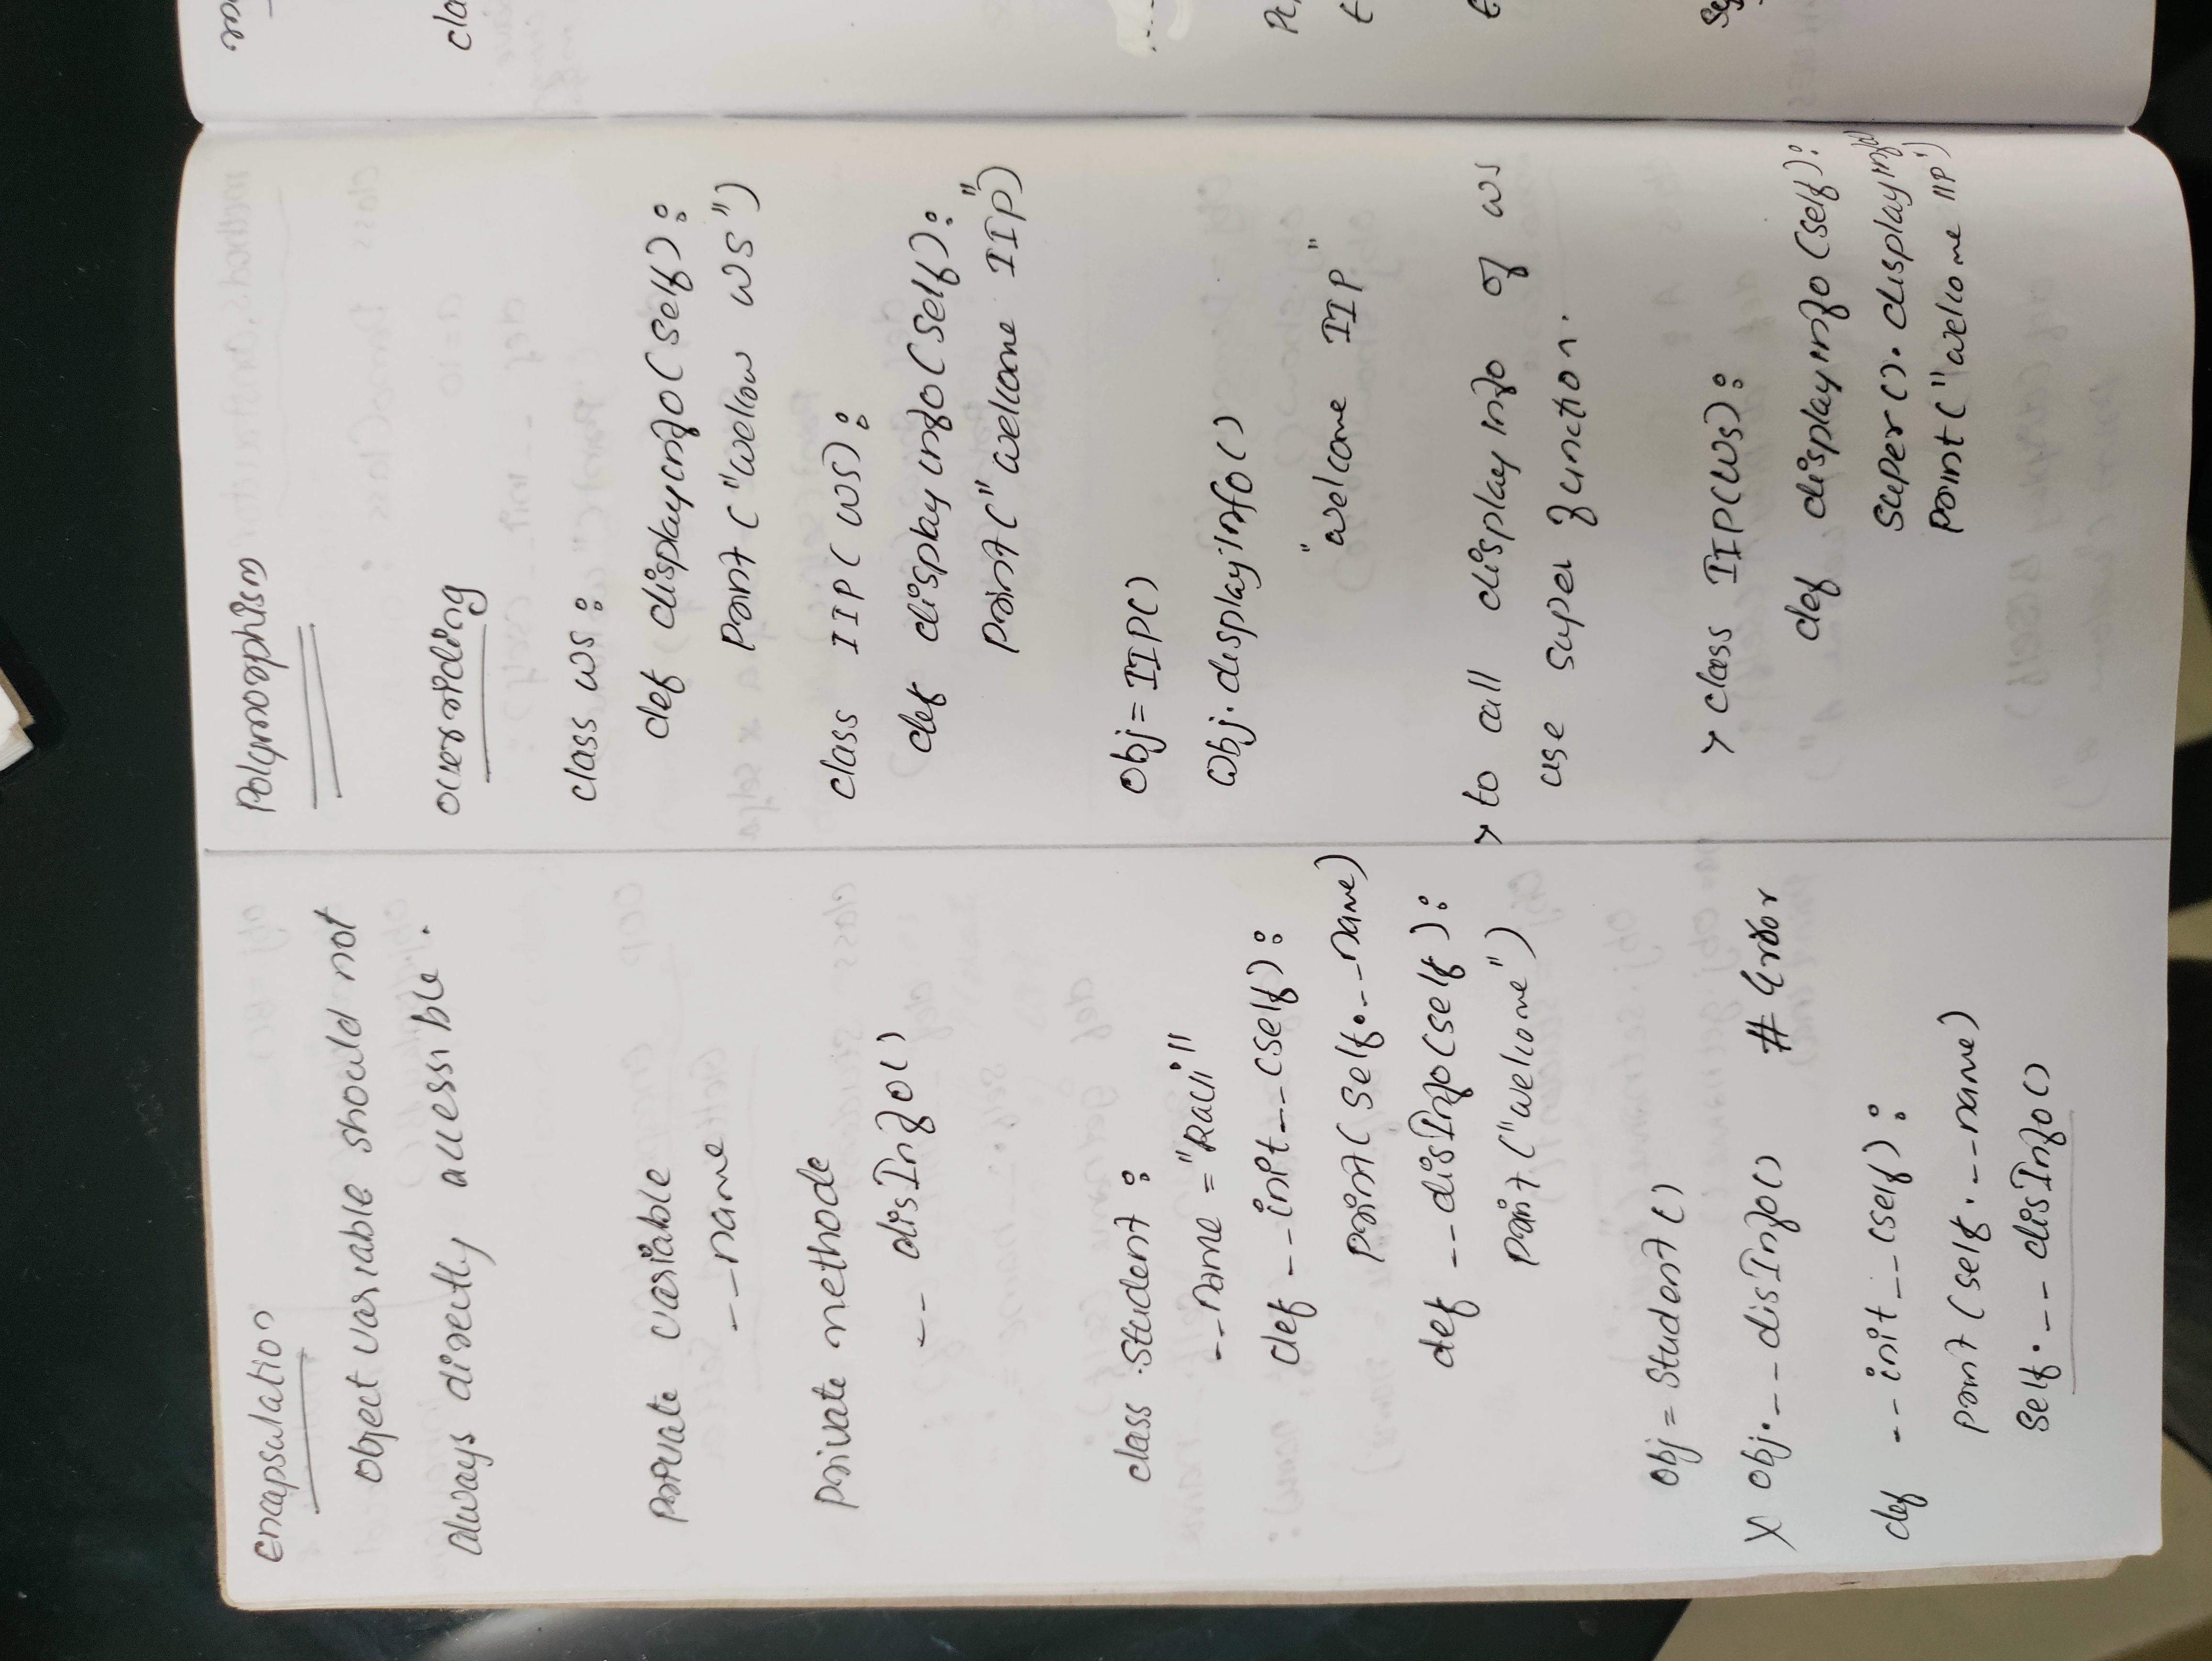 Encapsulation
Object variable should not
always directly accessible.
Private variable
__name
Private methode
__ disInfo()
class Student :
__name = "Ravi"
def __init__(self):
print( self.__name)
def __disInfo(self):
print("welcome")
obj = Student ()
X obj.__disInfo() # Error
def __init__(self):
print (self.__name)
self.__ disInfo()
Polymorphism
overriding
class WS :
def displayinfo(self):
print ("wellow WS")
class IIP( WS):
def displayinfo(self):
print(" welcome IIP")
obj= IIP()
obj.displayinfo()
"welcome IIP"
> to call displayinfo of WS
use super function.
> class IIP(WS):
def displayinfo (self):
super().displayinfo()
print("welcome IIP")
cla